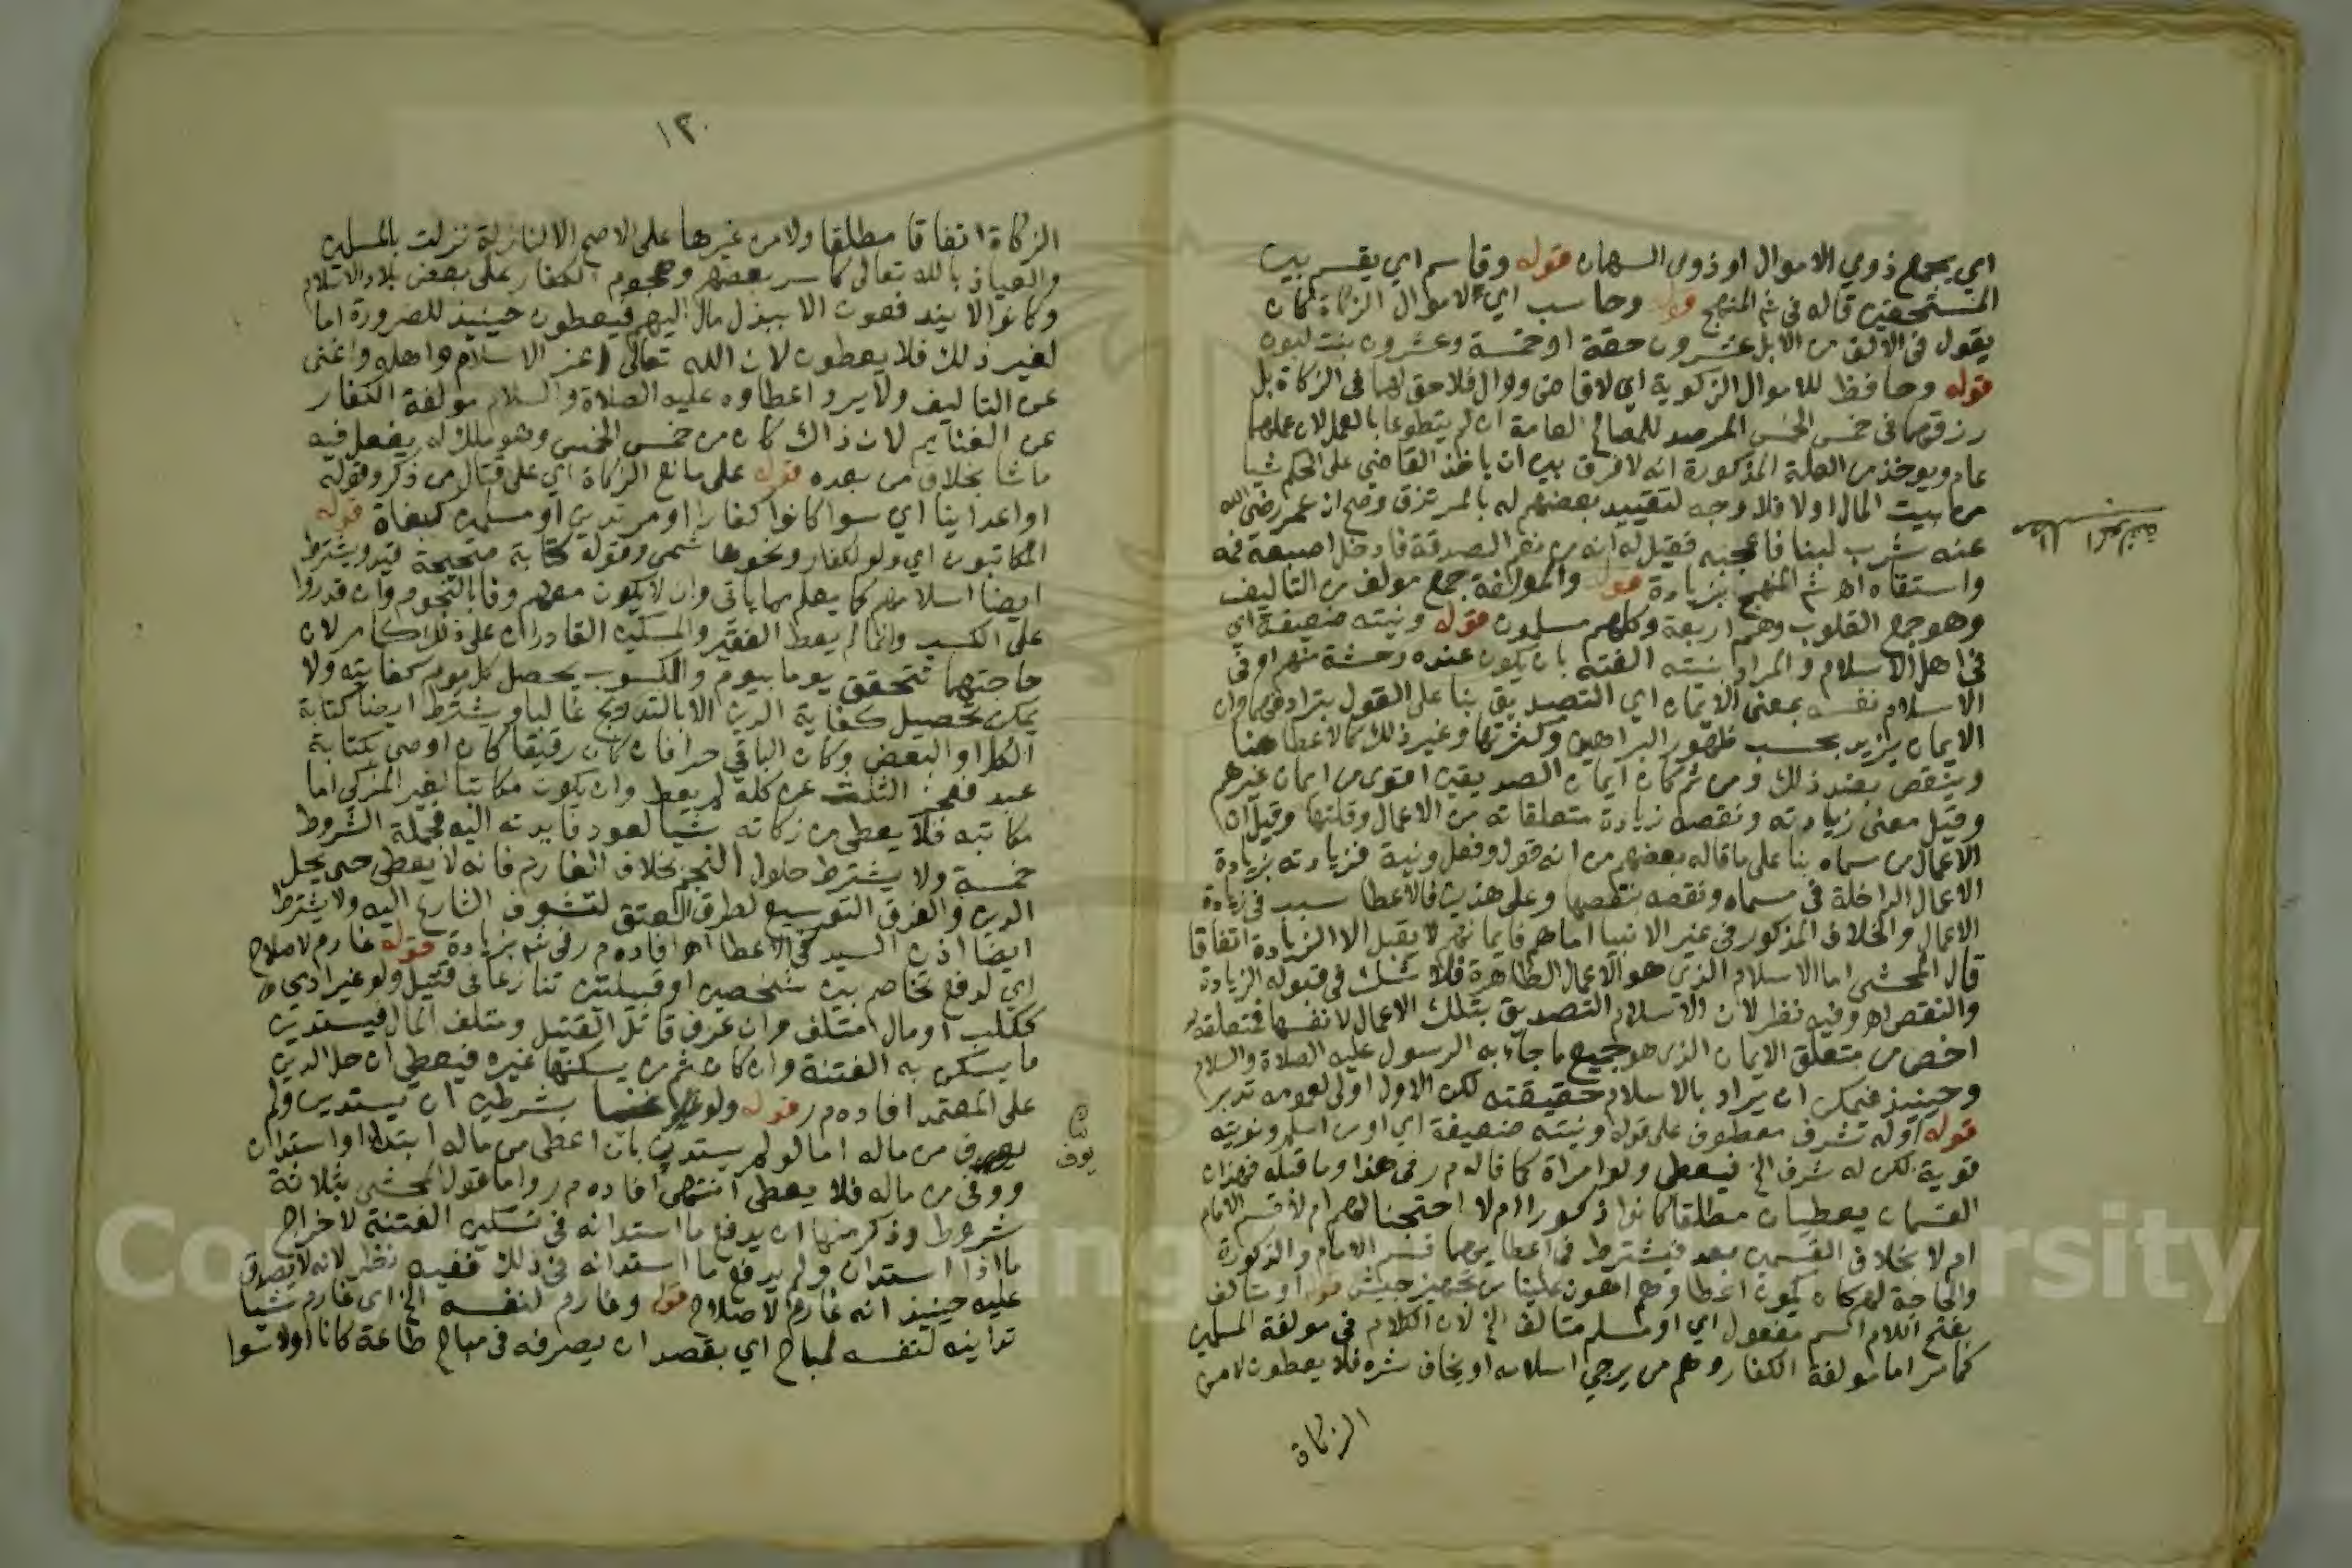 اي يجمع ذوي الاموال او ذوي السهمان قوله وقاسم اي يقسم بين
المستحقين قاله في شم المنهج قوله وحاسب اي لاموال الزكاة كان
يقول في الالف من الابل عشرون حقة او خمسة وعشرون بنت لبون
قوله وحافظ للاموال الزكوية اي لا قاض ووال فلا حق لهما في الزكاة بل
رزقهما في خمس الخمس المرصد للمصالح العامة ان لم يتطوعا بالعمل لان عملهما
عام ويوخذ من العلة المذكورة انه لا فرق بين ان ياخذ القاضي على الحكم شيا
من بيت المال او لا فلا وجه لتقييد بعضهم له بالمرتزق وصح ان عمر رضي الله
عنه شرب لبنا فاعجبه فقيل له انه من نعم الصدقة فادخل اصبعه فمه
واستقاه اه شم المنهج بزيادة قوله والمولفة جمع مولف من التاليف
وهو جمع القلوب وهم اربعة وكلهم مسلمون قوله ونيته ضعيفة اي
في اهل الاسلام والمراد بنيته الفته بان يكون عنده وحشة منهم او في
الاسلام نفسه بمعنى الايمان اي التصديق بنا على القول بترادفهما وان
الايمان يزيد بحسب ظهور البراهين وكثرتها وغير ذلك كالاعطا هنا
وينقص بضد ذلك ومن ثم كان ايمان الصديقين اقوى من ايمان غيرهم
وقيل معنى زيادته ونقصه زيادة متعلقاته من الاعمال وقلتها وقيل ان
الاعمال من مسماه بنا على ما قاله بعضهم من انه قول وفعل ونية فزيادته بزيادة
الاعمال الداخلة في مسماه ونقصه بنقصها وعلى هذين فالاعطا سبب في زيادة
الاعمال والخلاف المذكور في غير الانبيا اما هم فايمانهم لا يقبل الا الزيادة اتفاقا
قال المحشي اما الاسلام الذي هو الاعمال الظاهرة فلا شك في قبوله الزيادة
والنقص اه وفيه نظر لان الاسلام التصديق بتلك الاعمال لا نفسها فمتعلقه
اخص من متعلق الايمان الذي هو جميع ما جاء به الرسول عليه الصلاة والسلام
وحينيذ فيمكن ان يراد بالاسلام حقيقته لكن الاول اولى لعمومه تدبر
قوله او له شرف معطوف على قوله ونيته ضعيفة اي او من اسلم ونويته
قوية لكن له شرف الخ فيعطى ولو امراة كما قاله م ر في هذا وما قبله فهذان
القسمان يعطيان مطلقا كانوا ذكورا ام لا احتجنا لهم ام لا قسم الامام
ام لا بخلاف القسمين بعد فيشترط في اعطايهما قسم الامام والذكورة
والحاجة لهم كان يكون اعطاوهم اهون علينا من تجهيز جيش قوله او متالف
بفتح اللام اسم مفعول اي او مسلم متالف الخ لان الكلام في مولفة المسلمين
كما مر اما مولفة الكفار وهم من يرجى اسلامه او يخاف شره فلا يعطون لا من
الزكاة
١٣٠
الزكاة اتفاقا مطلقا ولا من غيرها على الاصح الا لنازلة نزلت بالمسلمين
والعياذ بالله تعالى كاسر بعضهم وهجوم الكفار على بعض بلاد الاسلام
وكانوا لا يندفعون الا ببذل مال اليهم فيعطون حينيذ للضرورة اما
لغير ذلك فلا يعطون لان الله تعالى اعز الاسلام واهله واغنى
عن التاليف ولا يرد اعطاوه عليه الصلاة والسلام مولفة الكفار
عن الغنايم لان ذاك كان من خمس الخمس وهو ملك له يفعل فيه
ما شا بخلاف من بعده قوله على مانع الزكاة اي على قتال من ذكر وقوله
او اعداينا اي سوا كانوا كفارا او مرتدين او مسلمين كبغاة قوله
المكاتبون اي ولو لكفار ونحوها شمي وقوله كتابة صحيحة قيد ويشترط
ايضا اسلامهم كما يعلم مما ياتي وان لا يكون معهم وفا بالنجوم وان قدروا
على الكسب وانما لم يعط الفقير والمسكين القادران على ذلك كما مر لان
حاجتهما تتحقق يوما بيوم والكسوب يحصل كل يوم كفايته ولا
يمكن تحصيل كفاية الدين الا بالتدريج غالبا ويشترط ايضا كتابة
الكل او البعض وكان الباقي حرا فان كان رقيقا كان اوصى بكتابة
عبد فعجز الثلث عن كله لم يعط وان يكون مكاتبا لغير المزكي اما
مكاتبه فلا يعطى من زكاته شيا لعود فايدته اليه فجملة الشروط
خمسة ولا يشترط حلول النجم بخلاف الغارم فانه لا يعطى حتى يحل
الدين والفرق التوسيع لطرق العتق لتشوف الشارع اليه ولا يشترط
ايضا اذن السيد في الاعطا اه افاده م ر في شم بزيادة قوله غارم لاصلاح
اي لدفع تخاصم بين شخصين او قبيلتين تنازعا في قتيل ولو غير ادمي
ككلب او مال متلف وان عرف قاتل القتيل ومتلف المال فيستدين
ما يسكن به الفتنة وان كان ثم من يسكنها غيره فيعطى ان حل الدين
على المعتمد افاده م ر قوله ولو غنيا بشرطين ان يستدين ولم
يوف من ماله اما لو لم يستدين بان اعطى من ماله ابتدا او استدان
ووفى من ماله فلا يعطى انتهى افاده م ر واما قول المحشي بثلاثة
شروط وذكر منها ان يدفع ما استدانه في تسكين الفتنة لاخراج
ما اذا استدان ولم يدفع ما استدانه في ذلك ففيه نظر لانه لا يصدق
عليه حينيذ انه غارم لاصلاح قوله وغارم لنفسه الخ اي غارم شيا
تداينه لنفسه لمباح اي بقصد ان يصرفه في مباح طاعة كان او لا سوا
يوف
Copyright © King Saud University